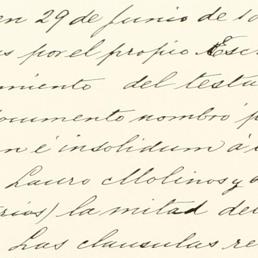 en 29 de Junio de 1
s por el propio Escr
miento del testa
documento nombró p
n é insolidum á
Lauro Molinos y
rios) la mitad de
Las clausulas re